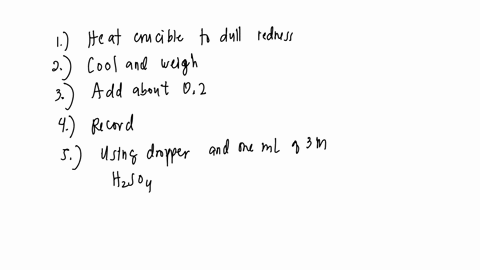 1.) Heat crucible to dull redness
2.) Cool and weigh
3.) Add about 0.2
4.) Record
5.) Using dropper and one mL of 3m
H₂SO₄